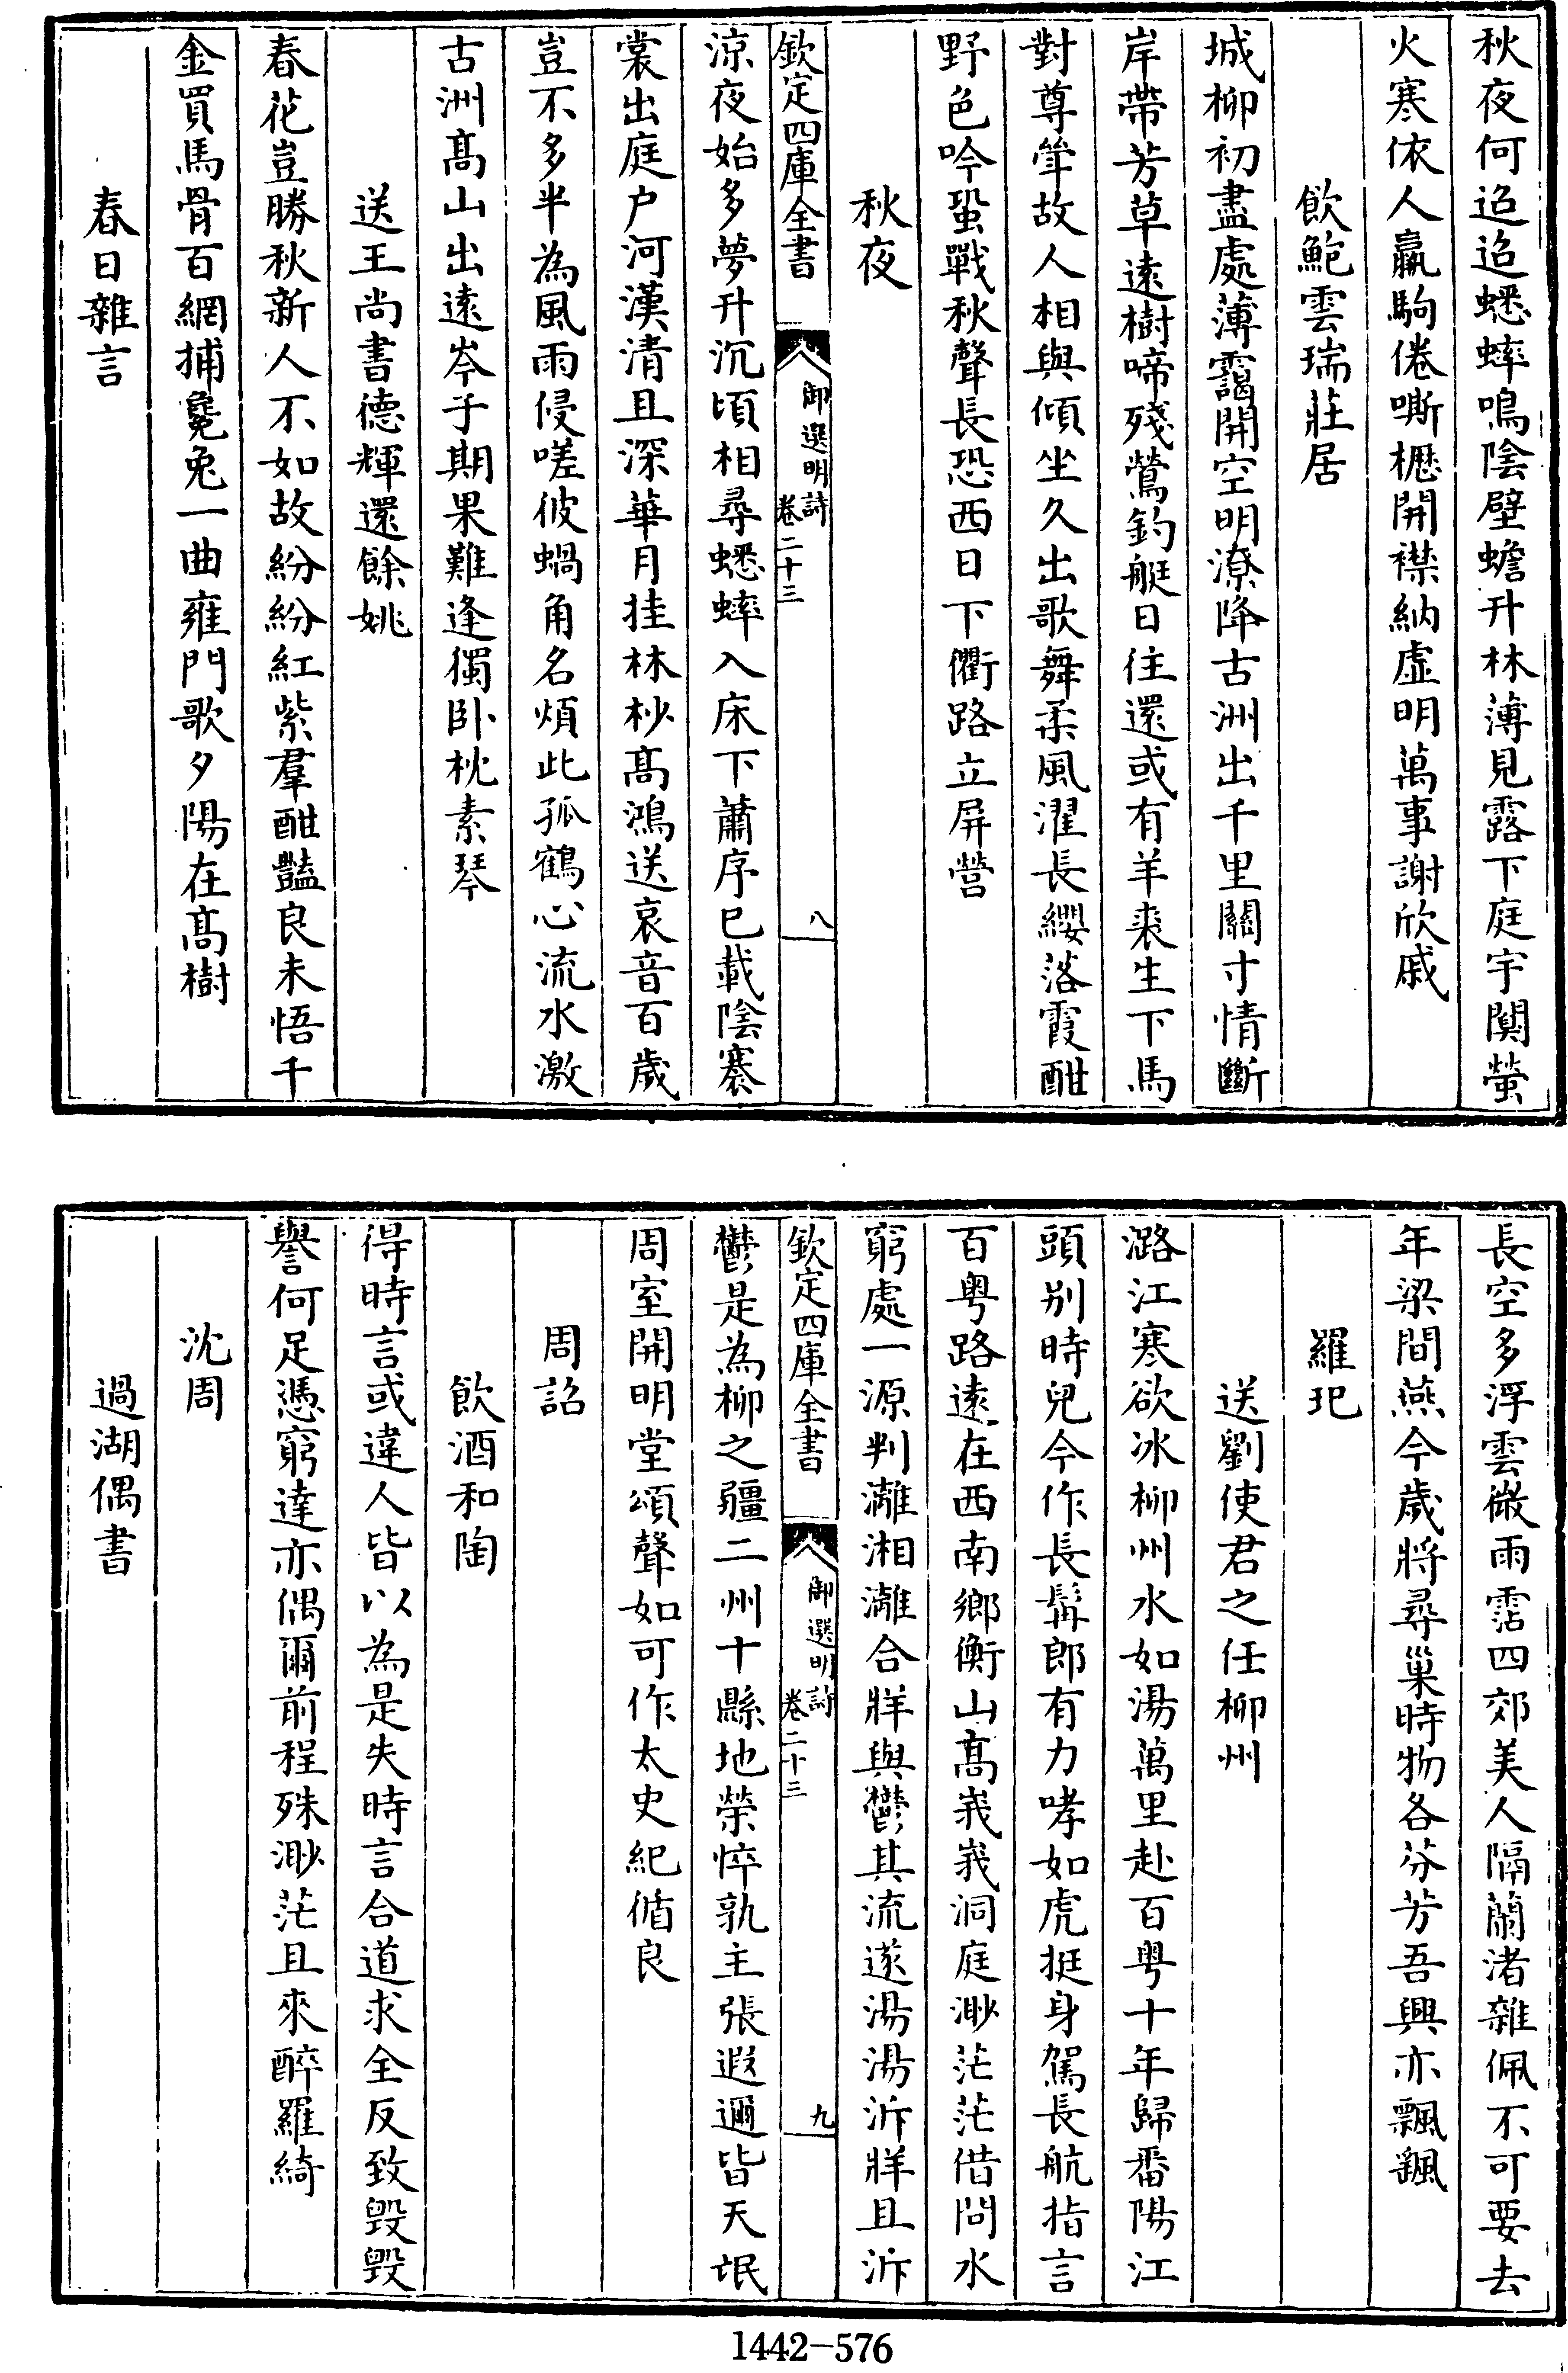 秋夜何迢迢蟋蟀鳴陰壁蟾升林薄見露下庭宇闃螢
火寒依人羸駒倦嘶櫪開襟納虛明萬事謝欣戚
飲鮑雲瑞莊居
城柳初盡處薄靄開空明潦降古洲出千里關寸情斷
岸帶芳草遠樹啼殘鶯釣艇日住還或有羊裘生下馬
對尊犖故人相與傾坐久出歌舞柔風濯長纓落霞酣
野色吟蛩戰秋聲長恐西日下衢路立屏營
秋夜
欽定四庫全書
御選明詩
卷二十三
八
涼夜始多夢升沉頃相尋蟋蟀入床下蕭序已載陰褰
裳出庭户河漢清且深華月挂林杪髙鴻送哀音百歲
豈不多半為風雨侵嗟彼蝸角名煩此孤鶴心流水激
古洲髙山出遠岑子期果難逢獨卧枕素琴
送王尚書德輝還餘姚
春花豈勝秋新人不如故紛紛紅紫羣酣豔良未悟千
金買馬骨百網捕毚兔一曲雍門歌夕陽在髙樹
春日雜言
長空多浮雲微雨霑四郊美人隔蘭渚雜佩不可要去
年梁間燕今歲將尋巢時物各芬芳吾興亦飄颻
羅玘
送劉使君之任柳州
潞江寒欲冰柳州水如湯萬里赴百粤十年歸番陽江
頭别時兒今作長髯郎有力哮如虎挺身駕長航指言
百粤路遠在西南鄉衡山髙峩峩洞庭渺茫茫借問水
窮處一源判灕湘灕合牂與鬱其流遂湯湯泝牂且泝
欽定四庫全書
御選明詩
卷二十三
九
鬱是為柳之疆二州十縣地榮悴孰主張遐邇皆天氓
周室開明堂頌聲如可作太史紀循良
周詔
飲酒和陶
得時言或違人皆以為是失時言合道求全反致毁毁
譽何足憑窮達亦偶爾前程殊渺茫且來醉羅綺
沈周
過湖偶書
1442-576